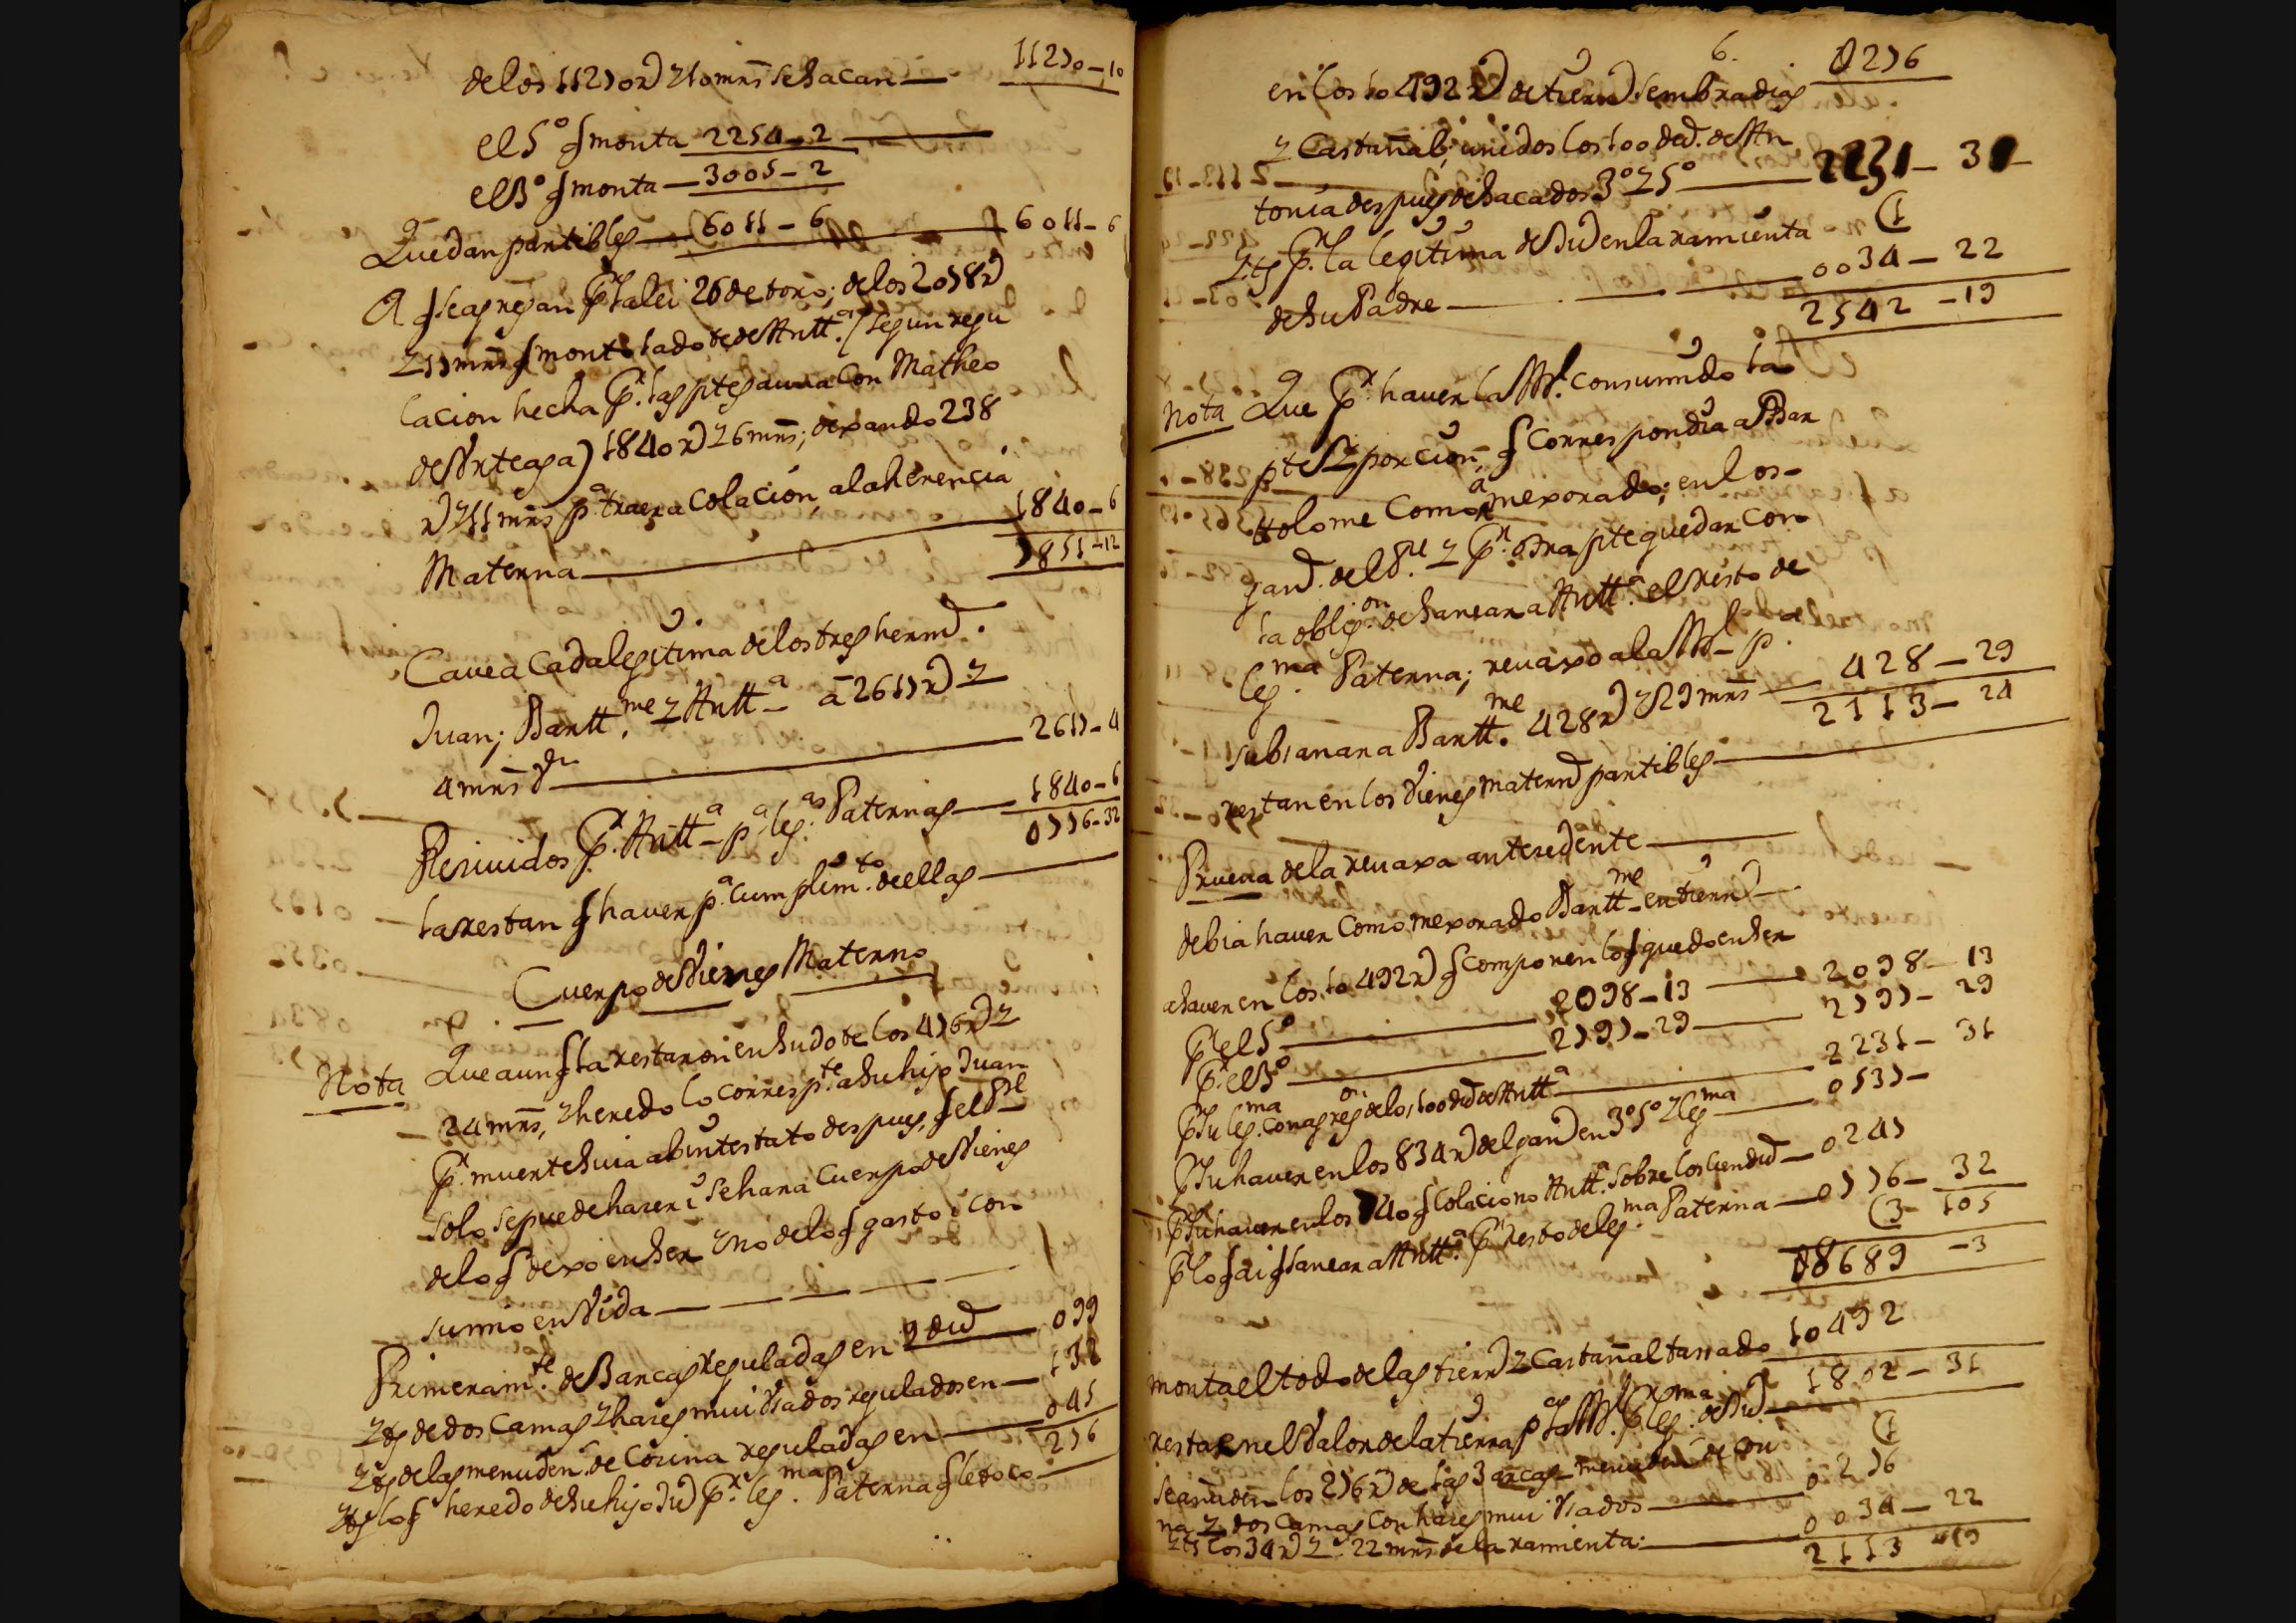 de los 11270 rs 210 mrs se hacan — 11270—10
el 5º q monta 2254—2
el 3º q monta — 3005—2
Quedan partibles — 6011—6 — 6011—6
A q se agregan Pr la lei 26 de toro; de los 2078 rs
2 17 mrs q monto la dote de Antt.ª (segun regu
lacion hecha Pr. las ptes auna con Matheo
de Arteaga) 1840 rs 2 6 mrs; dexando 238
rs 2 11 mrs p.ª traer a Colacion, ala herencia
Materna — 1840—6
7851—12
Cave a Cada legitima de los tres herms.
Juan; Bartt.me 2 Antt.ª a 2617 rs 2
4 mrs Vn — 2617—4
Reciuidos Pr. Antt.ª p.ª leg.as Paternas — 1840—6
la restan q haver p.ª cumplim.to de ellas — 0776—32
Cuerpo de Vienes Materno
Nota Que aunq la restaron en su dote los 476 rs 2
24 mrs, 2 heredo lo corresp.te a su hijo Juan
Pr. muerte suia abintestato despues, q el Pe
solo se puede hacer i se hara Cuerpo de Vienes
de lo q dexo en ser 2 no de lo q gasto i con
sumio en Vida —
Primeram.te de Barcas reguladas en 9 dud — 099
2 ts de dos Camas 2 hares mui Vsados regulados en — 132
2 ts de las menuden. de Cocina reguladas en — 045
276
2 ts lo q heredo de su hijo Ju Pr. leg.ma Paterna q le toco —
6. 0276
en los 10492 rs de tierrs sembradias
2 Castañal; unidos los 100 dud. de An
tonia despues de sacados 3º 2 5º — 2231—31
2 ts Pr. la legitima de Ju en la ramienta (1
de su Padre — 0034—22
2542—19
Nota Que Pr. haver la M.e consumido la
pte 2 porcion, q Correspondia a Bar
tolome Como mexorado; en los
gand. del Pe. 2 Pr. otra pte quedar con
la oblig.on de sanear a Antt.ª el resto de
leg.ma Paterna; revaxo a la M.e p.ª
subsanar a Bartt.me 428 rs 2 29 mrs — 428—29
restan en los Vienes matern partibles — 2113—24
Prueva de la revaxa antecedente —
debia haver Como mexorado Bartt.me en tierrs
a haver en los 10492 rs q componen lo q quedo en ser
Pr el 5º — 2098—13 — 2098—13
Pr. el 3º — 2797—29 — 2797—29
P su leg.ma con agreg.on de los 100 dud de Antt.ª — 2231—31
P su haver en los 834 rs del gand en 3º 5º 2 leg.ma — 0537—
P su haver en los 740 q Colaciono Antt.ª sobre los cien dud — 0247
P lo q ai q sanear a Antt.ª Pr resto de leg.ma Paterna — 0776—32
(3— 105
08689—3
monta el todo de las tierrs 2 Castañal tassado 10492
resta en el Valor de la tierra p.ª la M.e Pr leg.ma de Ju — 1802—31
(1
se añaden los 276 rs de las 3 arcas menuden de Coci
na 2 dos Camas con hares mui Vsados — 0276
2 ts los 34 rs 2 22 mrs de la ramienta: — 0034—22
2113—19